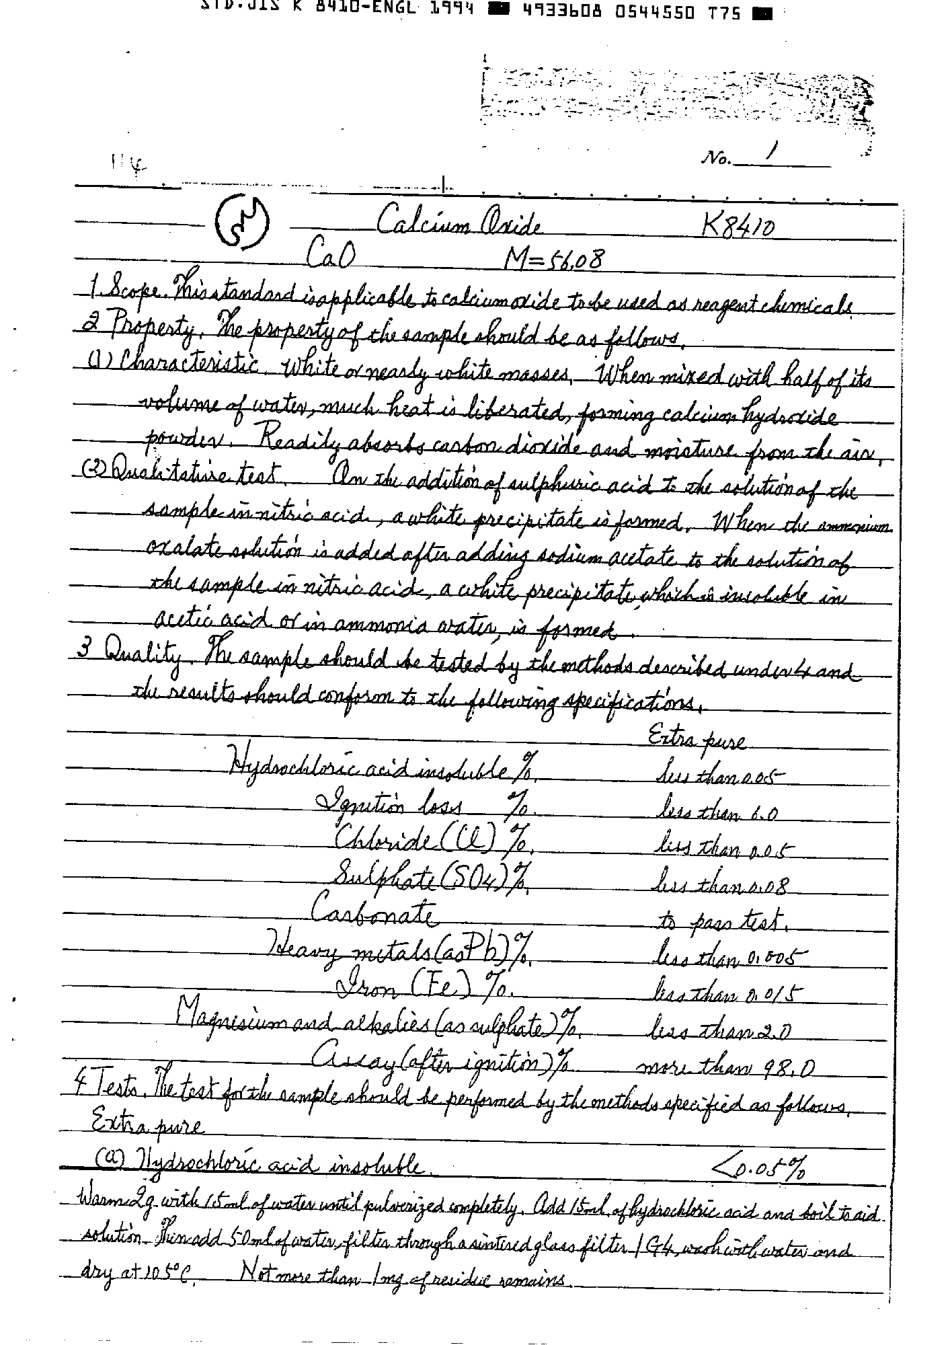 STD.JIS K 8410-ENGL 1994 ■ 4933608 0544550 T75 ■
No. 1
114
Calcium Oxide K8410
CaO M=56.08
1. Scope. This standard is applicable to calcium oxide to be used as reagent chemicals
2 Property. The property of the sample should be as follows.
(1) Characteristic. White or nearly white masses. When mixed with half of its
volume of water, much heat is liberated, forming calcium hydroxide
powder. Readily absorbs carbon dioxide and moisture from the air.
(2) Qualitative test. On the addition of sulphuric acid to the solution of the
sample in nitric acid, a white precipitate is formed. When the ammonium
oxalate solution is added after adding sodium acetate to the solution of
the sample in nitric acid, a white precipitate, which is insoluble in
acetic acid or in ammonia water, is formed.
3 Quality. The sample should be tested by the methods described under 4 and
the results should conform to the following specifications.
Extra pure
Hydrochloric acid insoluble %. less than 0.05
Ignition loss %. less than 6.0
Chloride (Cl) %. less than 0.05
Sulphate (SO4) %. less than 0.08
Carbonate to pass test.
Heavy metals (as Pb) %. less than 0.005
Iron (Fe) %. less than 0.015
Magnesium and alkalies (as sulphate) %. less than 2.0
Assay (after ignition) % more than 98.0
4 Tests. The test for the sample should be performed by the methods specified as follows.
Extra pure
(a) Hydrochloric acid insoluble. <0.05%
Warm 2g with 15ml of water until pulverized completely. Add 15ml of hydrochloric acid and boil to aid
solution. Then add 50ml of water, filter through a sintered glass filter 1G4, wash with water and
dry at 105°C. Not more than 1mg of residue remains.